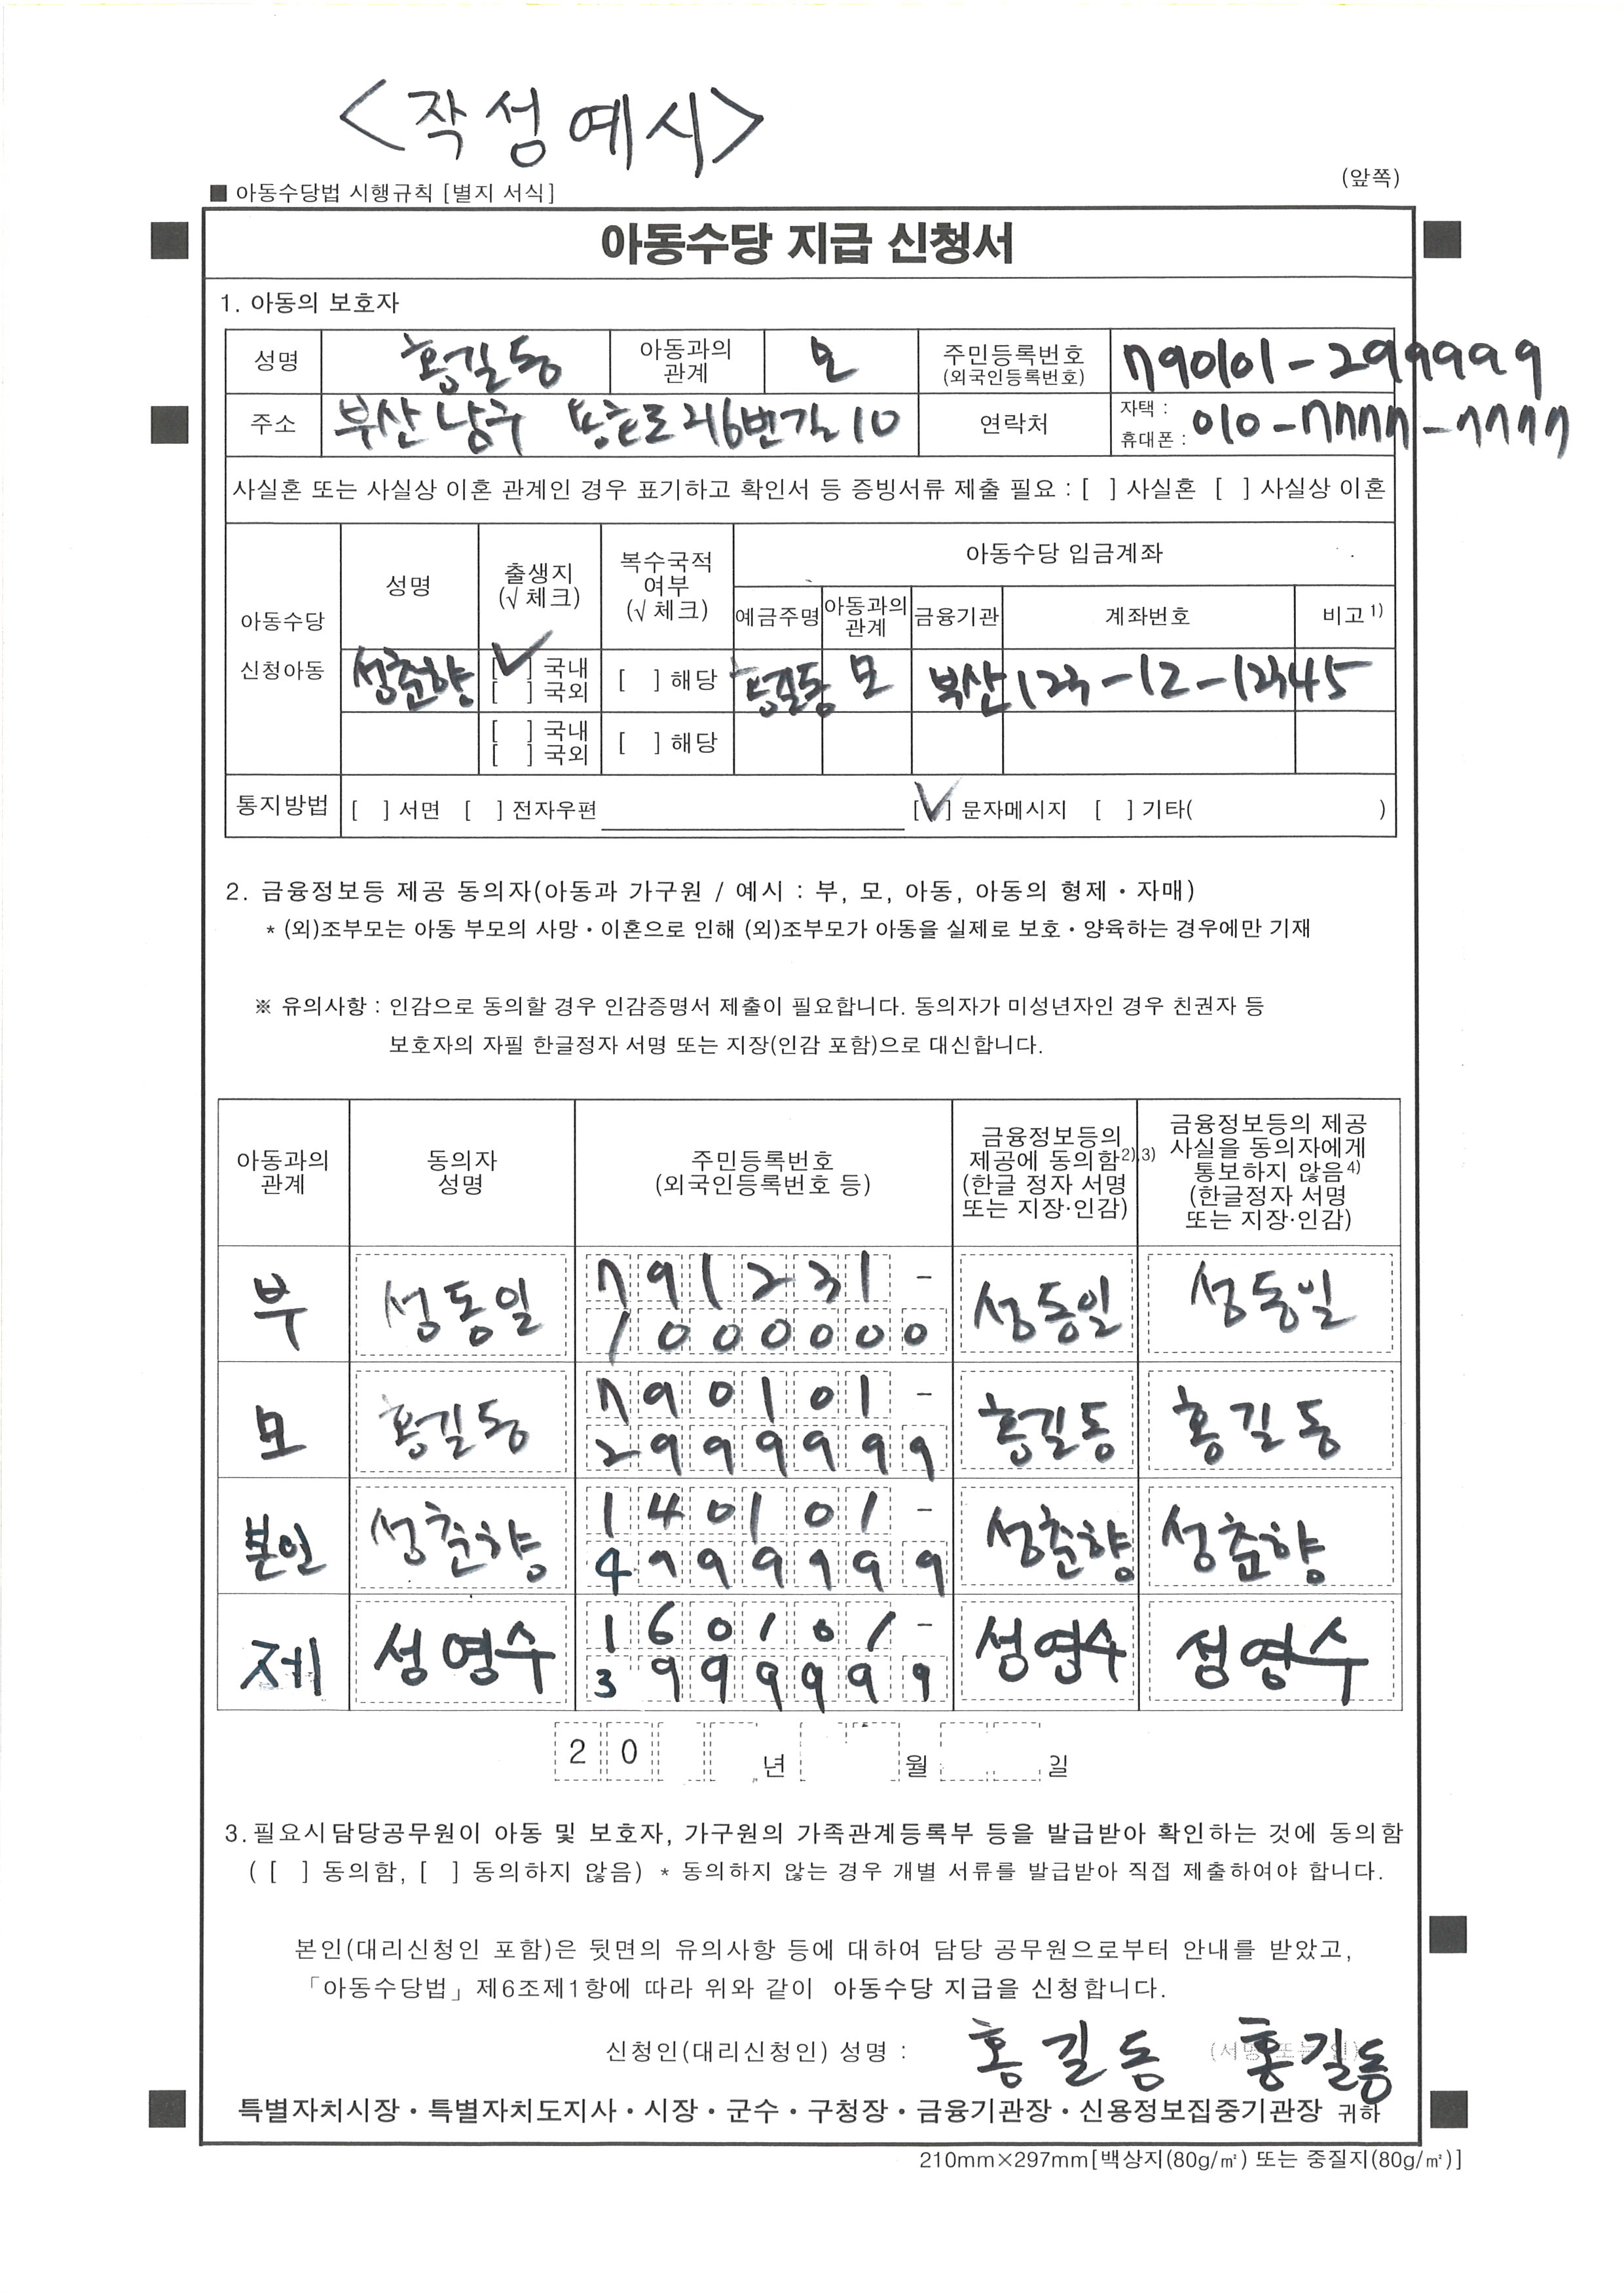 <작성예시>
(앞쪽)
■ 아동수당법 시행규칙 [별지 서식]
아동수당 지급 신청서
1. 아동의 보호자
성명 홍길동 아동과의 관계 모 주민등록번호 (외국인등록번호) 790101-2999999
주소 부산 남구 번길 10 연락처 자택 : 휴대폰 : 010-7777-7777
사실혼 또는 사실상 이혼 관계인 경우 표기하고 확인서 등 증빙서류 제출 필요 : [ ] 사실혼 [ ] 사실상 이혼
아동수당 신청아동 성명 출생지 (√ 체크) 복수국적 여부 (√ 체크) 아동수당 입금계좌
예금주명 아동과의 관계 금융기관 계좌번호 비고 1)
성춘향 [✓] 국내 [ ] 국외 [ ] 해당 홍길동 모 부산 123-12-12345
[ ] 국내 [ ] 국외 [ ] 해당
통지방법 [ ] 서면 [ ] 전자우편 [✓] 문자메시지 [ ] 기타( )
2. 금융정보등 제공 동의자(아동과 가구원 / 예시 : 부, 모, 아동, 아동의 형제・자매)
* (외)조부모는 아동 부모의 사망・이혼으로 인해 (외)조부모가 아동을 실제로 보호・양육하는 경우에만 기재
※ 유의사항 : 인감으로 동의할 경우 인감증명서 제출이 필요합니다. 동의자가 미성년자인 경우 친권자 등
보호자의 자필 한글정자 서명 또는 지장(인감 포함)으로 대신합니다.
아동과의 관계 동의자 성명 주민등록번호 (외국인등록번호 등) 금융정보등의 제공에 동의함2),3) (한글 정자 서명 또는 지장·인감) 금융정보등의 제공 사실을 동의자에게 통보하지 않음4) (한글정자 서명 또는 지장·인감)
부 성동일 791231-1000000 성동일 성동일
모 홍길동 790101-2999999 홍길동 홍길동
본인 성춘향 140101-4999999 성춘향 성춘향
제 성영수 160101-3999999 성영수 성영수
20 년 월 일
3. 필요시 담당공무원이 아동 및 보호자, 가구원의 가족관계등록부 등을 발급받아 확인하는 것에 동의함
( [ ] 동의함, [ ] 동의하지 않음) * 동의하지 않는 경우 개별 서류를 발급받아 직접 제출하여야 합니다.
본인(대리신청인 포함)은 뒷면의 유의사항 등에 대하여 담당 공무원으로부터 안내를 받았고,
「아동수당법」제6조제1항에 따라 위와 같이 아동수당 지급을 신청합니다.
신청인(대리신청인) 성명 : 홍길동 (서명 또는 인) 홍길동
특별자치시장・특별자치도지사・시장・군수・구청장・금융기관장・신용정보집중기관장 귀하
210mm×297mm[백상지(80g/㎡) 또는 중질지(80g/㎡)]